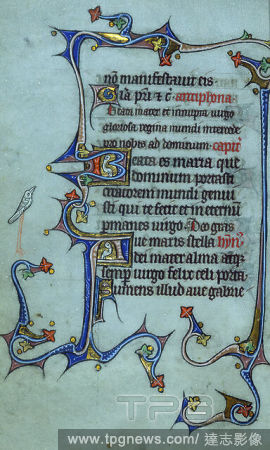 nō manifestavit eis
Gl̄a pr̄i ⁊ c̄. antiphona
Beata mater et innupta virgo
gloriosa regina mundi intercede
pro nobis ad dominum. capit̄
Beata es maria que
dominum portasti
creatorem mundi genui
sti qui te fecit et in eternū
permanes virgo. Deo gr̄as
Ave maris stella hym̄
dei mater alma atq̄
semp̄ virgo felix celi porta
Sumens illud ave gabrie
TPG
www.tpgnews.com/達志影像